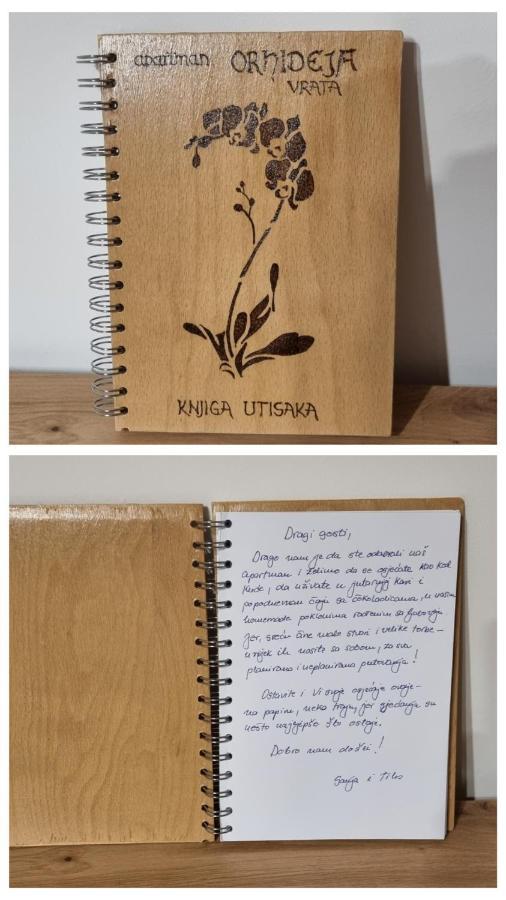 apartman ORHIDEJA
VRATA
KNJIGA UTISAKA
Dragi gosti,
Drago nam je da ste odabrali naš
apartman i želimo da se osjećate kao kod
kuće, da uživate u jutarnjoj kavi i
popodnevnom čaju sa čokoladicama, u našim
homemade poklonima rađenim sa ljubavlju
jer, sreću čine male stvari i velike torbe –
uvijek ih nosite sa sobom, za sva
planirana i neplanirana putovanja!
Ostavite i Vi svoje osjećaje ovdje –
na papiru, neka traju, jer sjećanja su
nešto najljepše što ostaje.
Dobro nam došli!
Sanja i